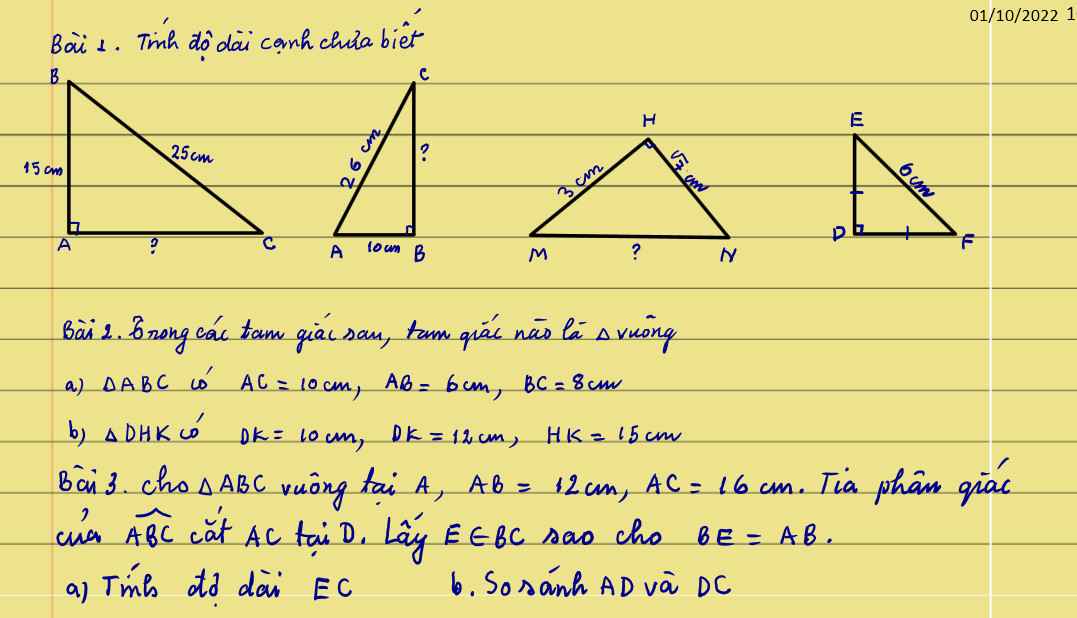 01/10/2022 1
Bài 1. Tính độ dài cạnh chưa biết
B
15cm
25cm
A
?
C
C
26 cm
?
A
10cm
B
H
3 cm
√7 cm
M
?
N
E
6cm
D
F
Bài 2. Trong các tam giác sau, tam giác nào là Δ vuông
a) ΔABC có AC = 10cm, AB = 6cm, BC = 8cm
b) ΔDHK có DK = 10cm, DK = 12cm, HK = 15cm
Bài 3. cho ΔABC vuông tại A, AB = 12cm, AC = 16 cm. Tia phân giác
của ABC cắt AC tại D. Lấy E ∈ BC sao cho BE = AB.
a) Tính độ dài EC b. So sánh AD và DC